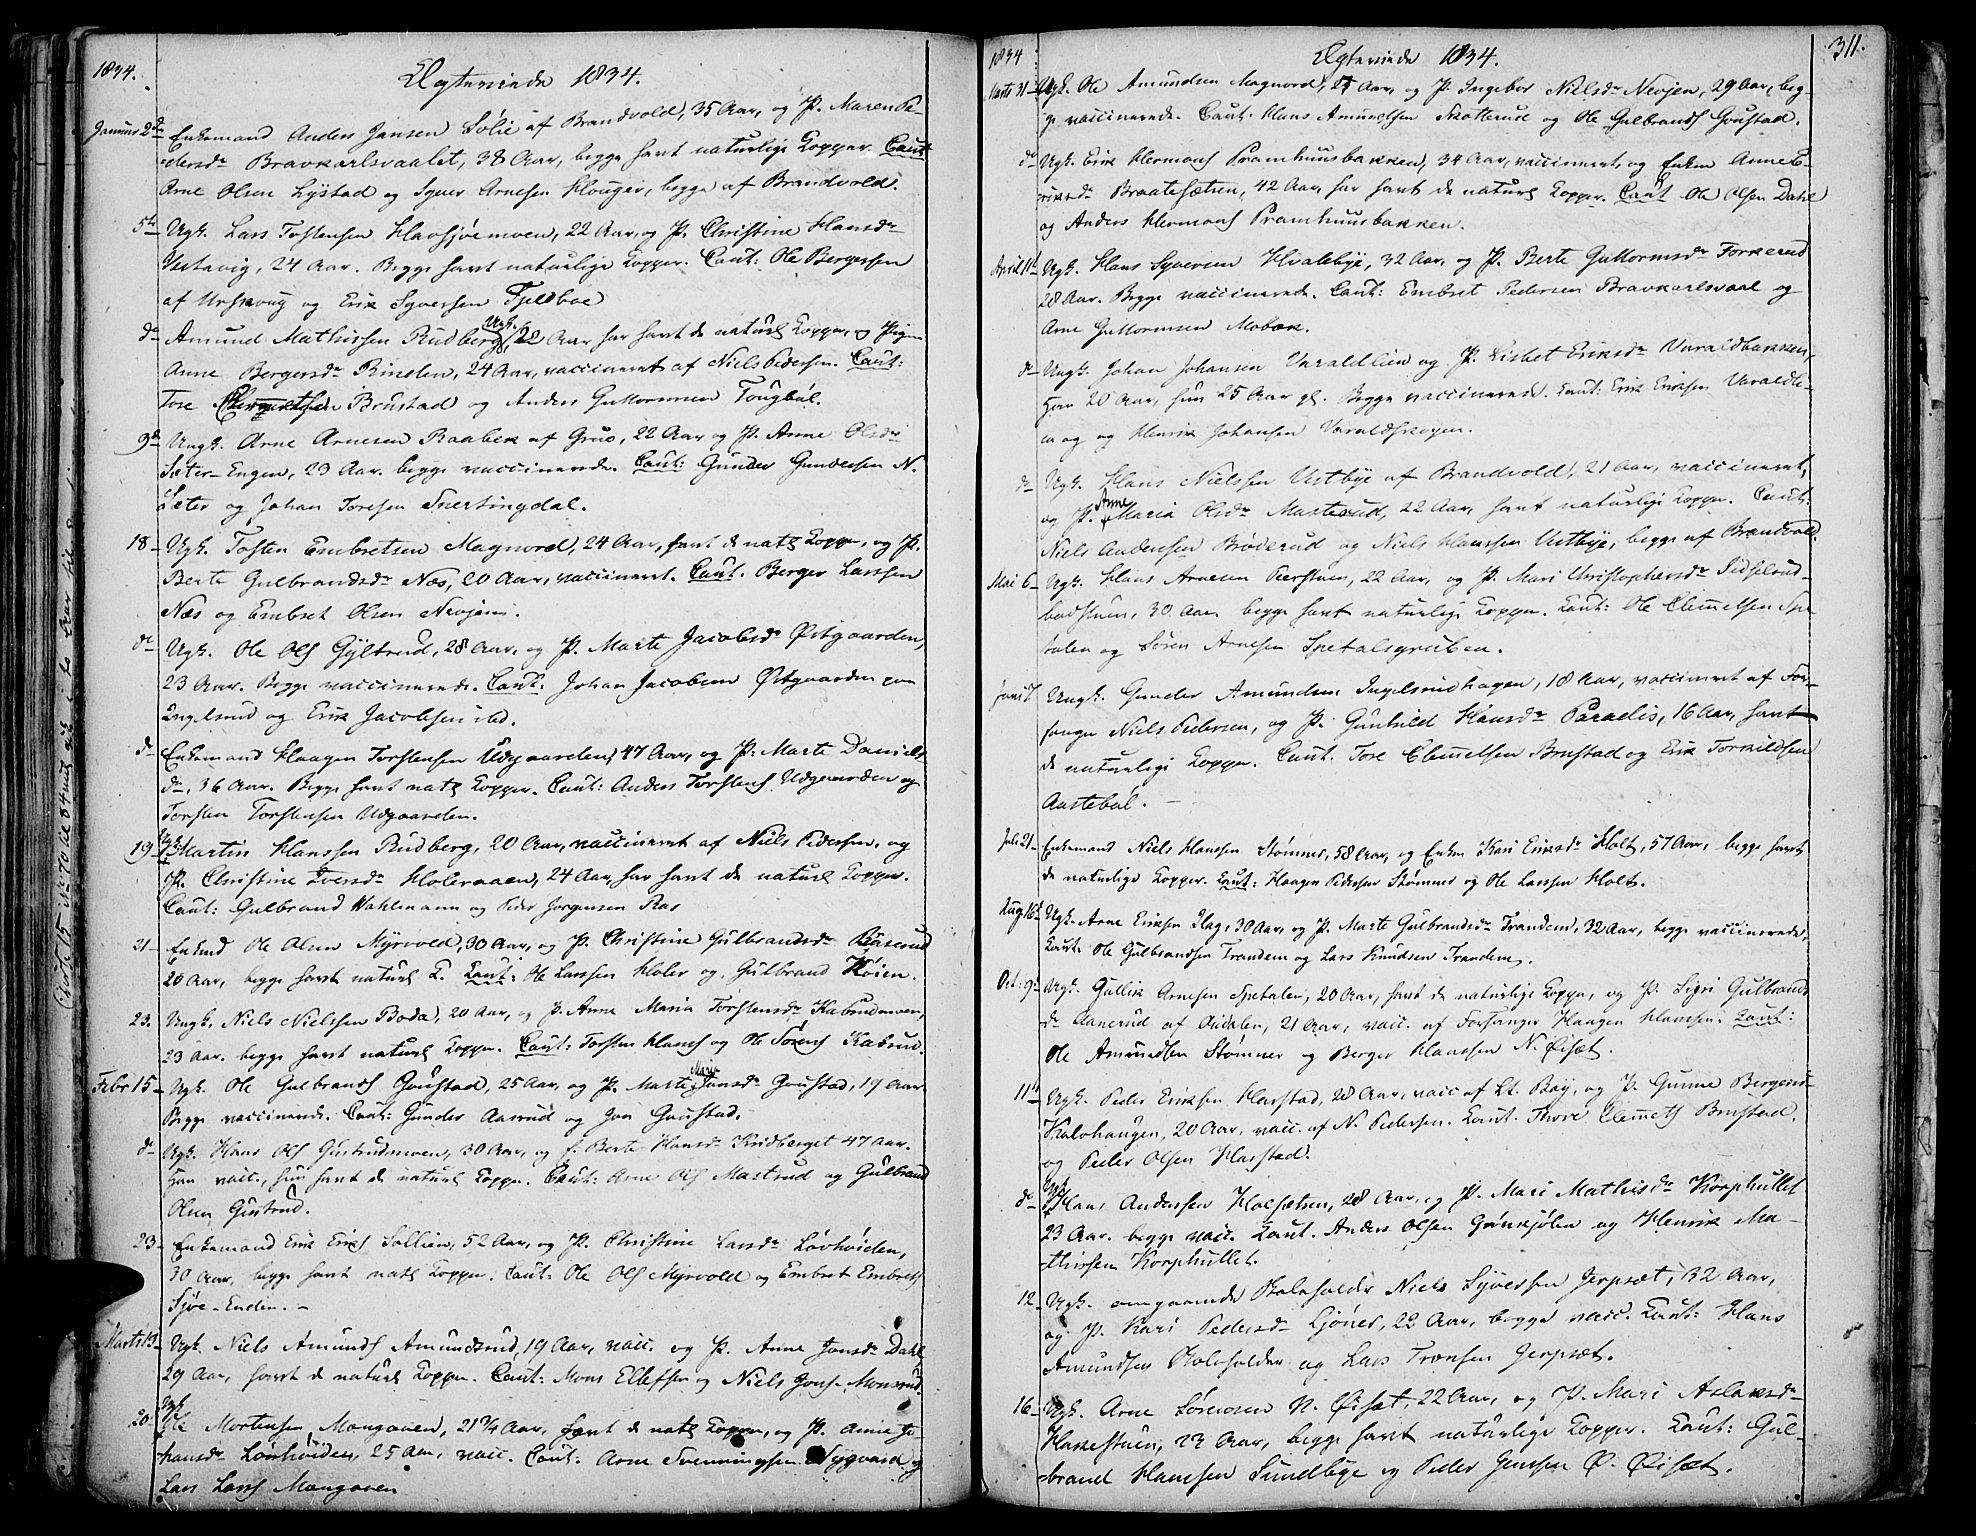 1834.
Ægteviede 1834.
Januar 2d Enkemand Anders Jansen Solie af Brandvold, 35 Aar, og P. Maren Pe-
dersdr Bravkarlsvaalet, 38 Aar, begge havt naturlige Kopper. Caut
Arne Olsen Lystad og Syver Arnesen Houger, begge af Brandvold.
5te Ugk. Lars Tostensen Havsjøemoen, 22 Aar, og P. Christine Hansdr
Vestavig, 24 Aar. Begge havt naturlige Kopper. Caut: Ole Bergersen
af Urskoug og Erik Syversen Fjeldboe
do Amund Mathissen Rudberg, Ugk. 22 Aar har havt de naturl Kopper, og Pige
Anne Bergersdr Rinden, 24 Aar, vaccineret af Niels Pedersen. Caut:
Tore Brustad og Anders Guttormsen Tougbøl.
9de Ungk. Arne Arnesen Raabek af Grue, 22 Aar og P. Anne Olsdr
Sæter-Engen, 23 Aar. begge vaccinerede. Caut: Gunder Gundersen N.
Sæter og Johan Toresen Snertingdal.
18 Ugk. Tosten Embretsen Magnord, 24 Aar, havt de natl Kopper, og P.
Berte Gulbrandsdr Næs, 20 Aar, vaccineret. Caut. Berger Larssen
Næs og Embret Olsen Nevjem.
do Ugk. Ole Ols Gyltrud, 28 Aar, og P. Marte Jacobsdr Østgaarden,
23 Aar. Begge vaccinerede. Caut: Johan Jacobsen Østgaarden paa
Ingelsrud og Erik Jacobsen ibd.
do Enkemand Haagen Torstensen Udgaarden, 47 Aar, og P: Marte Daniels-
dr, 36 Aar. Begge havt natl Kopper. Caut: Anders Torstens Udgaarden og
Torsten Torstensen Udgaarden.
19 Ugk. Martin Hanssen Rudberg, 20 Aar, vaccineret af Niels Pedersen, og
P. Christine Iversdr Holeraaen, 24 Aar, har havt de naturl Kopper.
Caut: Gulbrand Wahlmann og Peder Jørgensen Ras
21 Enkmd Ole Olsen Myrvold, 30 Aar, og P. Christine Gulbrandsdr Baserud
20 Aar, begge havt naturl K. Caut: Ole Larssen Holer og Gulbrand Køien.
23. Ungk. Niels Nielssen Boda, 20 Aar, og P. Anne Maria Torstensdr Kabrudmoen,
23 Aar. begge havt naturl Kopper. Caut: Torsten Hans og Ole Sørens Kabrud.
Febr 15 Ugk. Ole Gulbrands Goustad, 25 Aar, og P. Marte Maria Jonsdr Goustad, 19 Aar
Begge vaccinerede. Caut: Gunder Aasrud og Jon Goustad.
do Ugk. Hans Ols Gustrudmoen, 30 Aar, og f. Berte Hansdr Kridberget 47 Aar.
Han vacc., hun havt de naturl Kopper. Caut: Arne Ols Mastrud og Gulbrand
Olsen Gustrud.
23 Enkemand Erik Eriks Sollien, 52 Aar, og P. Christine Larsdr Lövhöiden,
30 Aar, begge havt natl Kopper. Caut: Ole Ols Myrvold og Embret Embrets
Sjøe-Enden.
Marts 13 Ugk. Niels Amunds Amundsrud, 19 Aar, vacc. og P. Anne Jonsdr Dahl
29 Aar, havt de naturl Kopper. Caut: Mons Ellefsen og Niels Jons Monsrud.
20 Ugk. Ole Mortensen Mangaaen, 21 3/4 Aar, havt de natl Kopper, og P. Anne Jo-
hansdr Lövhöiden, 25 Aar, vacc. Caut: Arne Svenningsen Nygaard og
Lars Lars Mangaaen
1834
Ægteviede 1834.
311.
Marts 31 Ugk. Ole Amundsen Magnord, 25 Aar, og P. Ingebor Nielsdr Nevjen, 29 Aar, beg-
ge vaccinerede. Caut. Hans Amundsen Skotterud og Ole Gulbrands Goustad.
do Ugk. Erik Hermans Pramhuusbakken, 34 Aar, vaccineret, og Enken Anne E-
riksdr Braatesætren, 42 Aar, har havt de naturl Kopper. Caut Ole Olsen Dahl
og Anders Hermans Pramhuusbakken.
April 11te Ugk. Hans Syversen Hvalebye, 32 Aar, og P. Berte Guttormsdr Forkerud
28 Aar. Begge vaccinerede. Caut: Embret Pedersen Bravkarlsvaal og
Arne Guttormsen Mobæk.
do Ungk. Johan Johansen Varaldlien og P. Lisbet Eriksdr Varaldbakken,
Han 20 Aar, hun 25 Aar gl. Begge vaccinerede. Caut: Erik Eriksen Varaldli-
en og Henrik Johansen Varaldskogen.
do Ugk. Hans Nielssen Vestbye af Brandvold, 21 Aar, vaccineret,
og P. Anne Maria Olsdr Masterud, 22 Aar, havt naturlige Kopper. Caut:
Niels Andersen Brøderud og Niels Hanssen Vestbye, begge af Brandvold.
Mai 6 Ugk. Hans Arnesen Peerstuen, 22 Aar, og P. Mari Christophersdr Sidselrud-
badstuen, 30 Aar begge havt naturlige Kopper. Caut: Ole Clemetsen Spe-
talen og Søren Arnesen Spetalsgruben.
Juni 7 Ungk. Gunder Amundsen Ingelsrudhagen, 18 Aar, vaccineret af For-
sanger Niels Pedersen, og P. Gunhild Hansdr Paradis, 16 Aar, havt
de naturlige Kopper. Caut. Tore Clemetsen Brustad og Erik Torkildsen
Aastebøl.
Juli 21 Enkemand Niels Hanssen Stømner, 58 Aar, og Enken Kari Eriksdr Holt, 57 Aar, begge havt
de naturlige Kopper. Caut: Haagen Pedersen Stømner og Ole Larssen Holt.
Aug 16 Ugk. Arne Eriksen Ilag, 30 Aar, og P. Marte Gulbrandsdr Trandem, 32 Aar, begge vaccinerede,
Caut. Ole Gulbrandsen Trandem og Lars Knudsen Trandem.
Oct: 9 Ugk. Gullik Arnesen Spetalen, 20 Aar, havt de naturlige Kopper, og P. Sigri Gulbrands-
dr Aanerud af Audalen, 21 Aar, vacc. af Forsanger Haagen Hansen. Caut:
Ole Amundsen Stømner og Berger Hanssen N. Øisæt.
11te Ugk. Peder Eriksen Harstad, 28 Aar, vacc af Lt. Bay, og P. Gunne Bergers-
Kalvhaugen, 20 Aar, vacc. af N. Pedersen. Caut. Thore Clemets Brustad,
og Peder Olsen Harstad.
do Ugk. Hans Andersen Holsætren, 28 Aar, og P. Mari Mathisdr Korphullet
23 Aar. begge vacc. Caut. Anders Olsen Grönkjölen og Henrik Ma-
thissen Korphullet.
12 Ugk. omgaaende Skoleholder Niels Syversen Jerpsæt, 32 Aar,
og P. Kari Pedersdr Ljöner, 22 Aar, begge vacc. Caut: Hans
Amundsen Skoleholder og Lars Tronsen Jerpsæt.
16 Ugk. Arne Sørensen N. Øisæt, 22 Aar, og P. Mari Aslaksdr
Hakestuen, 23 Aar, begge havt naturlige Kopper. Caut: Gul-
brand Hanssen Sundbye og Peder Jensen Ø. Øisæt.